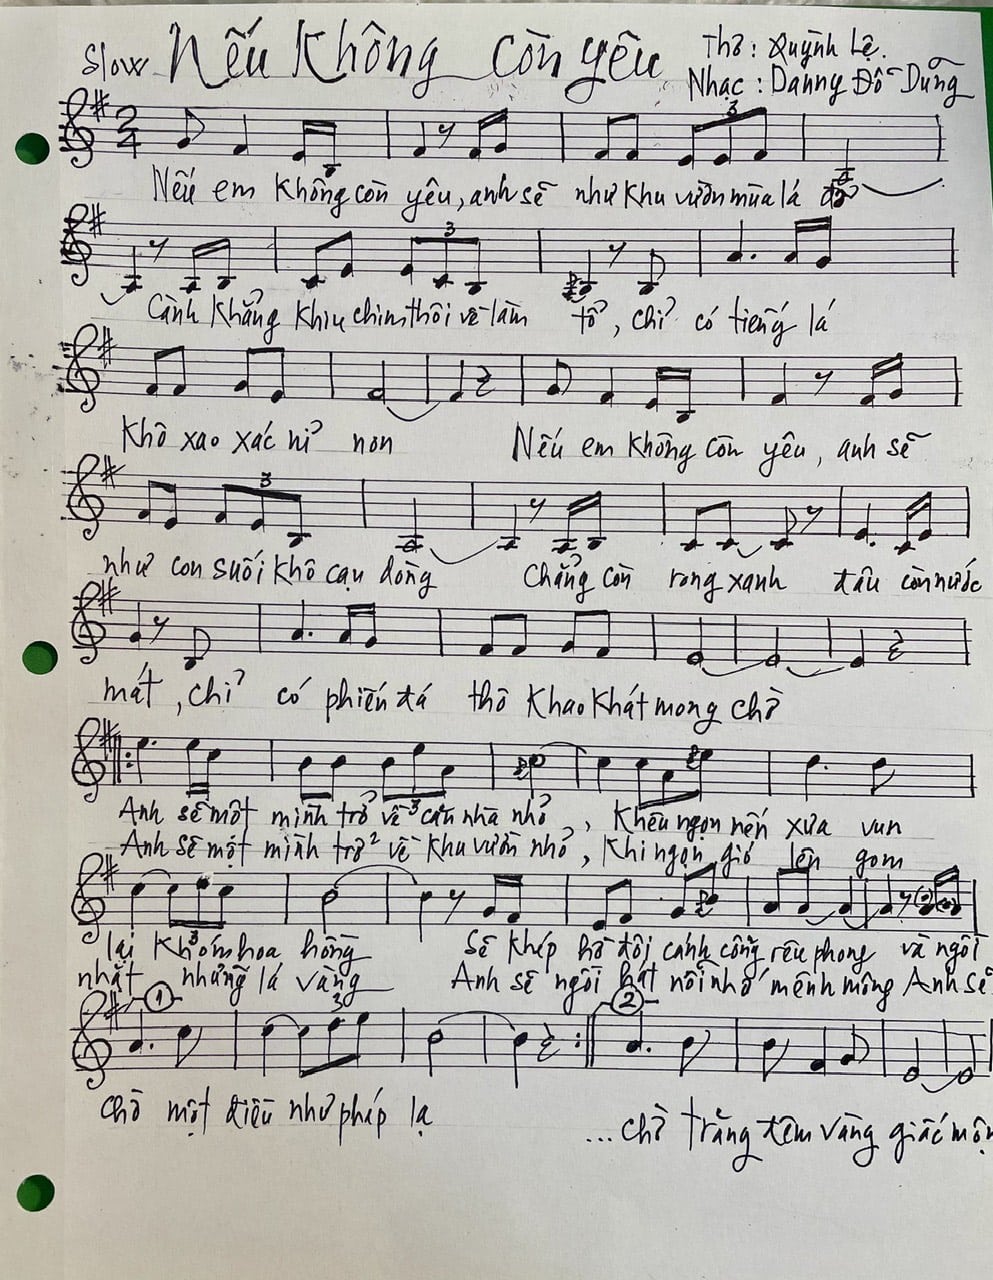 Slow Nếu Không Còn yêu
Thơ: Quỳnh Lệ.
Nhạc: Danny Đỗ Dũng
2/4 3
Nếu em không còn yêu, anh sẽ như khu vườn mùa lá đổ
3
Cành khẳng khiu chim thôi về làm tổ, chỉ có tiếng lá
khô xao xác nỉ non Nếu em không còn yêu, anh sẽ
3
như con suối khô cạn dòng Chẳng còn rong xanh đâu còn nước
mát, chỉ có phiến đá thô khao khát mong chờ
3
Anh sẽ một mình trở về căn nhà nhỏ, Khêu ngọn nến xưa vun
Anh sẽ một mình trở về khu vườn nhỏ, Khi ngọn gió lên gom
3
lại khóm hoa hồng Sẽ khép hờ đôi cánh cổng rêu phong và ngồi
nhặt những lá vàng Anh sẽ ngồi hát nỗi nhớ mênh mông Anh sẽ
1 3 2
chờ một điều như pháp lạ ...chờ trăng đêm vàng giấc mộn